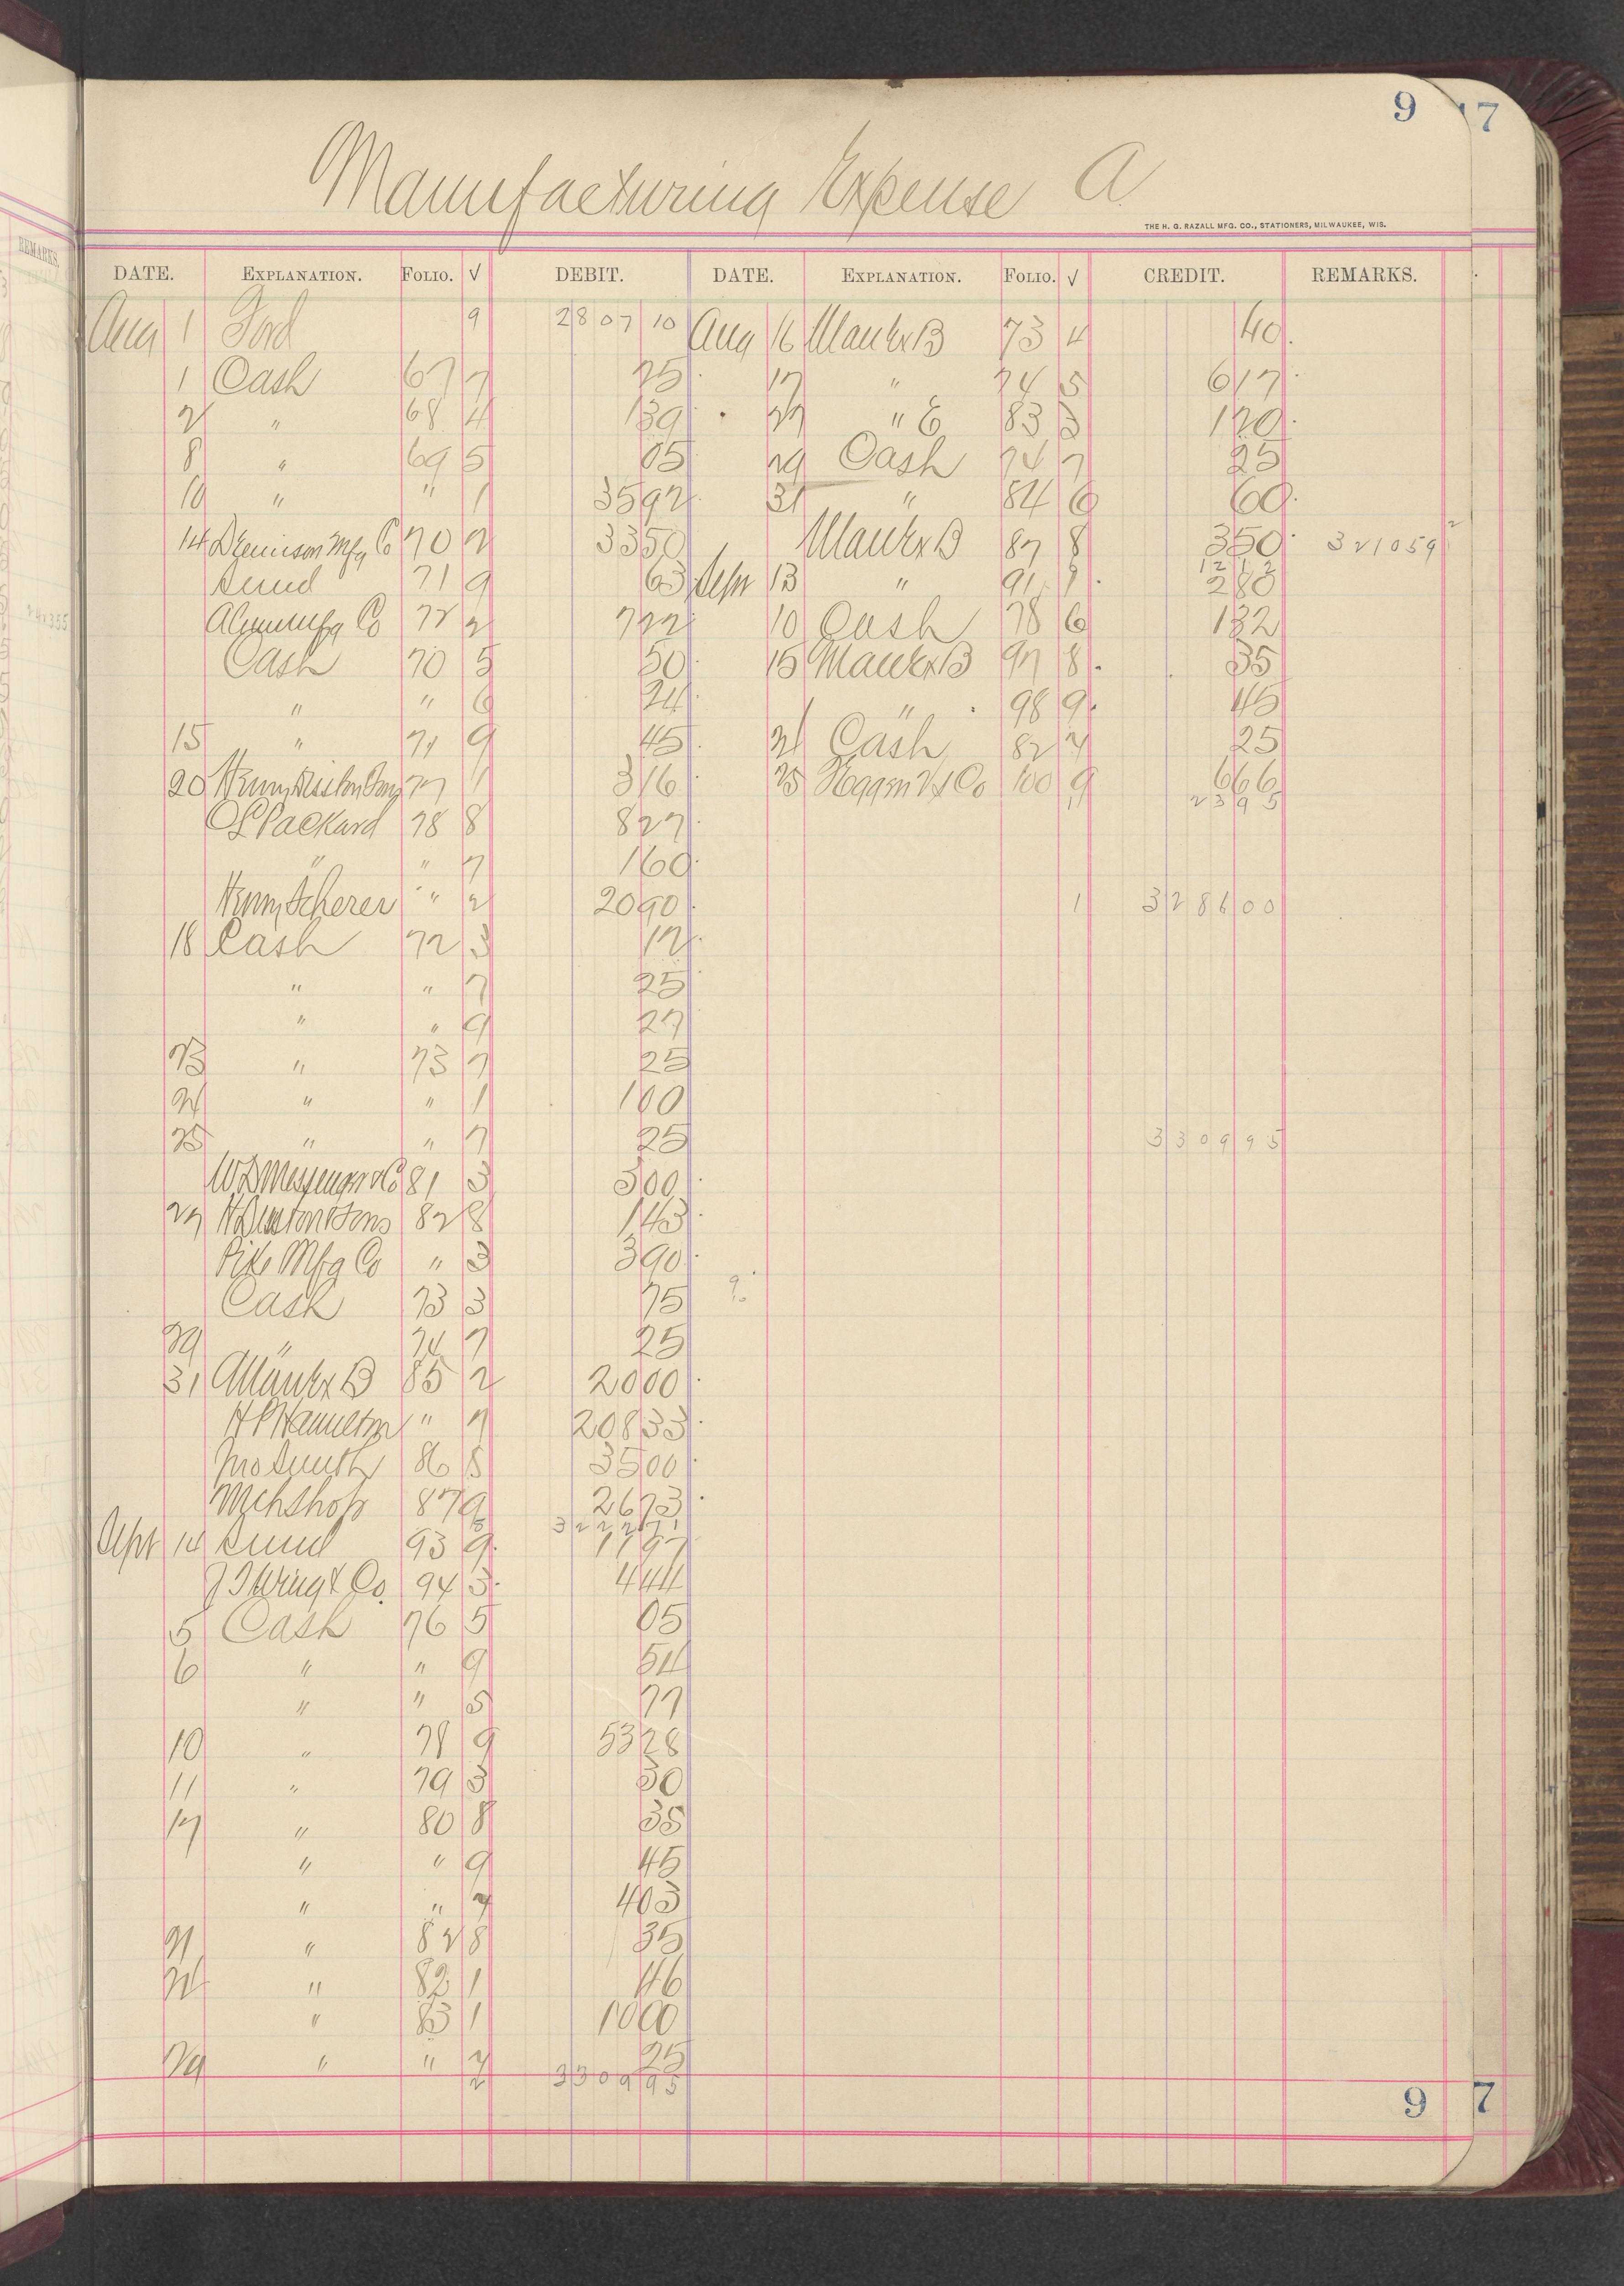 9 17
Manufacturing Expense A
THE H. G. RAZALL MFG. CO., STATIONERS, MILWAUKEE, WIS.
REMARKS.
DATE. EXPLANATION. FOLIO. √ DEBIT. DATE. EXPLANATION. FOLIO. √ CREDIT. REMARKS.
Aug 1 Ford 9 2807 10 Aug 16 Man Ex B 73 4 40
1 Cash 67 7 25 17 " 74 5 6 17
2 " 68 4 1 39 27 " E 83 3 1 20
8 " 69 5 05 29 Cash 74 7 25
10 " " 1 35 92 31 " 84 6 60
14 Dennison Mfg Co 70 2 33 50 Man Ex B 87 8 3 50 3210 59
Sund 71 9 63 Sept 13 " 91 1 2 80
12 12
Mfg Co 72 2 7 22 10 Cash 78 6 1 32
Cash 70 5 50 15 Man Ex B 97 8 35
" " 6 24 " 98 9 45
15 " 71 9 45 21 Cash 82 7 25
20 Henry Disston Sons 77 1 3 16 25 & Co 100 9 6 66
23 95
O L Packard 78 8 8 27
" " 7 1 60
Henry Scherer " 2 20 90 1 3286 00
18 Cash 72 3 12
" " 7 25
" " 9 27
23 " 73 7 25
24 " " 1 1 00
25 " " 7 25 3309 95
W D Messenger & Co 81 3 3 00
27 H Disston & Sons 82 8 1 43
Pike Mfg Co " 3 3 90
Cash 73 3 75
29 " 74 7 25
31 Man Ex B 85 2 20 00
H P Hamilton " 7 208 33
Jno Smith 86 8 35 00
Mch Shop 87 9 26 73
3222 71
Sept 14 Sund 93 9 11 97
J J Wing & Co. 94 3 4 44
5 Cash 76 5 05
6 " " 9 54
" " 5 77
10 " 78 9 53 28
11 " 79 3 30
17 " 80 8 35
" " 9 45
" " 7 4 03
21 " 82 8 35
24 " 82 1 46
" 83 1 10 00
29 " " 7 25
2 3309 95
9 7